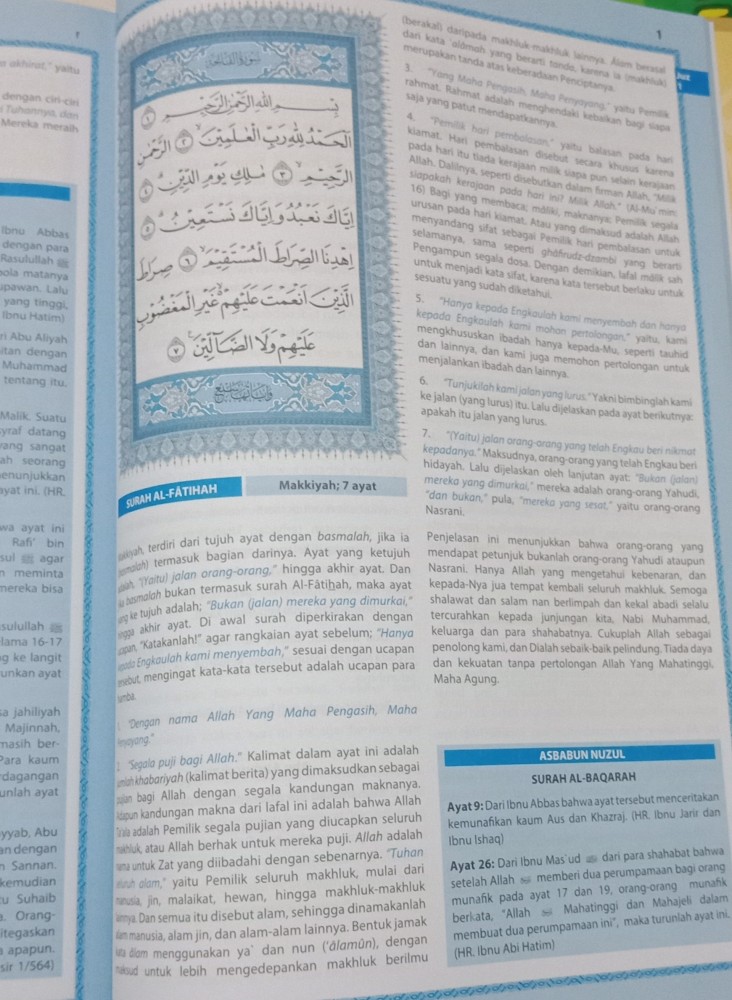 r akhirat," yaitu
dengan ciri-ciri
Tuhannya, dan
Mereka meraih
Ibnu Abbas
dengan para
Rasulullah ﷺ
ola matanya
ipawan. Lalu
yang tinggi,
Ibnu Hatim)
ri Abu Aliyah
itan dengan
Muhammad
tentang itu.
Malik. Suatu
syraf datang
yang sangat
ah seorang
enunjukkan
ayat ini. (HR.
wa ayat ini
Rafi' bin
sul ﷺ agar
n meminta
mereka bisa
sulullah ﷺ
lama 16-17
g ke langit
unkan ayat
sa jahiliyah
Majinnah,
masih ber-
Para kaum
rdagangan
unlah ayat
yyab, Abu
an dengan
n Sannan.
kemudian
u Suhaib
a. Orang-
itegaskan
a apapun.
sir 1/564)
1
سورة الفاتحة
بِسْمِ اللّٰهِ الرَّحْمٰنِ الرَّحِيْمِ ١
اَلْحَمْدُ لِلّٰهِ رَبِّ الْعٰلَمِيْنَۙ ٢ الرَّحْمٰنِ
الرَّحِيْمِۙ ٣ مٰلِكِ يَوْمِ الدِّيْنِۗ ٤
اِيَّاكَ نَعْبُدُ وَاِيَّاكَ نَسْتَعِيْنُۗ ٥
اِهْدِنَا الصِّرَاطَ الْمُسْتَقِيْمَۙ ٦ صِرَاطَ
الَّذِيْنَ اَنْعَمْتَ عَلَيْهِمْ ەۙ غَيْرِ الْمَغْضُوْبِ
عَلَيْهِمْ وَلَا الضَّاۤلِّيْنَ ٧
SURAH AL-FÂTIHAH
Makkiyah; 7 ayat
terdiri dari tujuh ayat dengan basmalah, jika ia
termasuk bagian darinya. Ayat yang ketujuh
"(Yaitu) jalan orang-orang," hingga akhir ayat. Dan
basmalah bukan termasuk surah Al-Fâtihah, maka ayat
ke tujuh adalah; "Bukan (jalan) mereka yang dimurkai,"
akhir ayat. Di awal surah diperkirakan dengan
"Katakanlah!" agar rangkaian ayat sebelum; "Hanya
Engkaulah kami menyembah," sesuai dengan ucapan
mengingat kata-kata tersebut adalah ucapan para
1. "Dengan nama Allah Yang Maha Pengasih, Maha
2. "Segala puji bagi Allah." Kalimat dalam ayat ini adalah
khabariyah (kalimat berita) yang dimaksudkan sebagai
bagi Allah dengan segala kandungan maknanya.
kandungan makna dari lafal ini adalah bahwa Allah
adalah Pemilik segala pujian yang diucapkan seluruh
atau Allah berhak untuk mereka puji. Allah adalah
untuk Zat yang diibadahi dengan sebenarnya. "Tuhan
alam," yaitu Pemilik seluruh makhluk, mulai dari
jin, malaikat, hewan, hingga makhluk-makhluk
Dan semua itu disebut alam, sehingga dinamakanlah
manusia, alam jin, dan alam-alam lainnya. Bentuk jamak
menggunakan ya` dan nun ('âlamûn), dengan
untuk lebih mengedepankan makhluk berilmu
(berakal) daripada makhluk-makhluk lainnya. Âlam berasal
dari kata 'alâmah yang berarti tanda, karena ia (makhluk)
merupakan tanda atas keberadaan Penciptanya.
3. "Yang Maha Pengasih, Maha Penyayang," yaitu Pemilik
rahmat. Rahmat adalah menghendaki kebaikan bagi siapa
saja yang patut mendapatkannya.
4. "Pemilik hari pembalasan," yaitu balasan pada hari
kiamat. Hari pembalasan disebut secara khusus karena
pada hari itu tiada kerajaan milik siapa pun selain kerajaan
Allah. Dalilnya, seperti disebutkan dalam firman Allah, "Milik
siapakah kerajaan pada hari ini? Milik Allah." (Al-Mu`min:
16) Bagi yang membaca; mâliki, maknanya; Pemilik segala
urusan pada hari kiamat. Atau yang dimaksud adalah Allah
menyandang sifat sebagai Pemilik hari pembalasan untuk
selamanya, sama seperti ghâfirudz-dzambi yang berarti
Pengampun segala dosa. Dengan demikian, lafal mâlik sah
untuk menjadi kata sifat, karena kata tersebut berlaku untuk
sesuatu yang sudah diketahui.
5. "Hanya kepada Engkaulah kami menyembah dan hanya
kepada Engkaulah kami mohon pertolongan," yaitu, kami
mengkhususkan ibadah hanya kepada-Mu, seperti tauhid
dan lainnya, dan kami juga memohon pertolongan untuk
menjalankan ibadah dan lainnya.
6. "Tunjukilah kami jalan yang lurus." Yakni bimbinglah kami
ke jalan (yang lurus) itu. Lalu dijelaskan pada ayat berikutnya:
apakah itu jalan yang lurus.
7. "(Yaitu) jalan orang-orang yang telah Engkau beri nikmat
kepadanya." Maksudnya, orang-orang yang telah Engkau beri
hidayah. Lalu dijelaskan oleh lanjutan ayat: "Bukan (jalan)
mereka yang dimurkai," mereka adalah orang-orang Yahudi,
"dan bukan," pula, "mereka yang sesat," yaitu orang-orang
Nasrani.
Penjelasan ini menunjukkan bahwa orang-orang yang
mendapat petunjuk bukanlah orang-orang Yahudi ataupun
Nasrani. Hanya Allah yang mengetahui kebenaran, dan
kepada-Nya jua tempat kembali seluruh makhluk. Semoga
shalawat dan salam nan berlimpah dan kekal abadi selalu
tercurahkan kepada junjungan kita, Nabi Muhammad,
keluarga dan para shahabatnya. Cukuplah Allah sebagai
penolong kami, dan Dialah sebaik-baik pelindung. Tiada daya
dan kekuatan tanpa pertolongan Allah Yang Mahatinggi,
Maha Agung.
ASBABUN NUZUL
SURAH AL-BAQARAH
Ayat 9: Dari Ibnu Abbas bahwa ayat tersebut menceritakan
kemunafikan kaum Aus dan Khazraj. (HR. Ibnu Jarir dan
Ibnu Ishaq)
Ayat 26: Dari Ibnu Mas`ud dari para shahabat bahwa
setelah Allah memberi dua perumpamaan bagi orang
munafik pada ayat 17 dan 19, orang-orang munafik
berkata, "Allah Mahatinggi dan Mahajeli dalam
membuat dua perumpamaan ini", maka turunlah ayat ini.
(HR. Ibnu Abi Hatim)